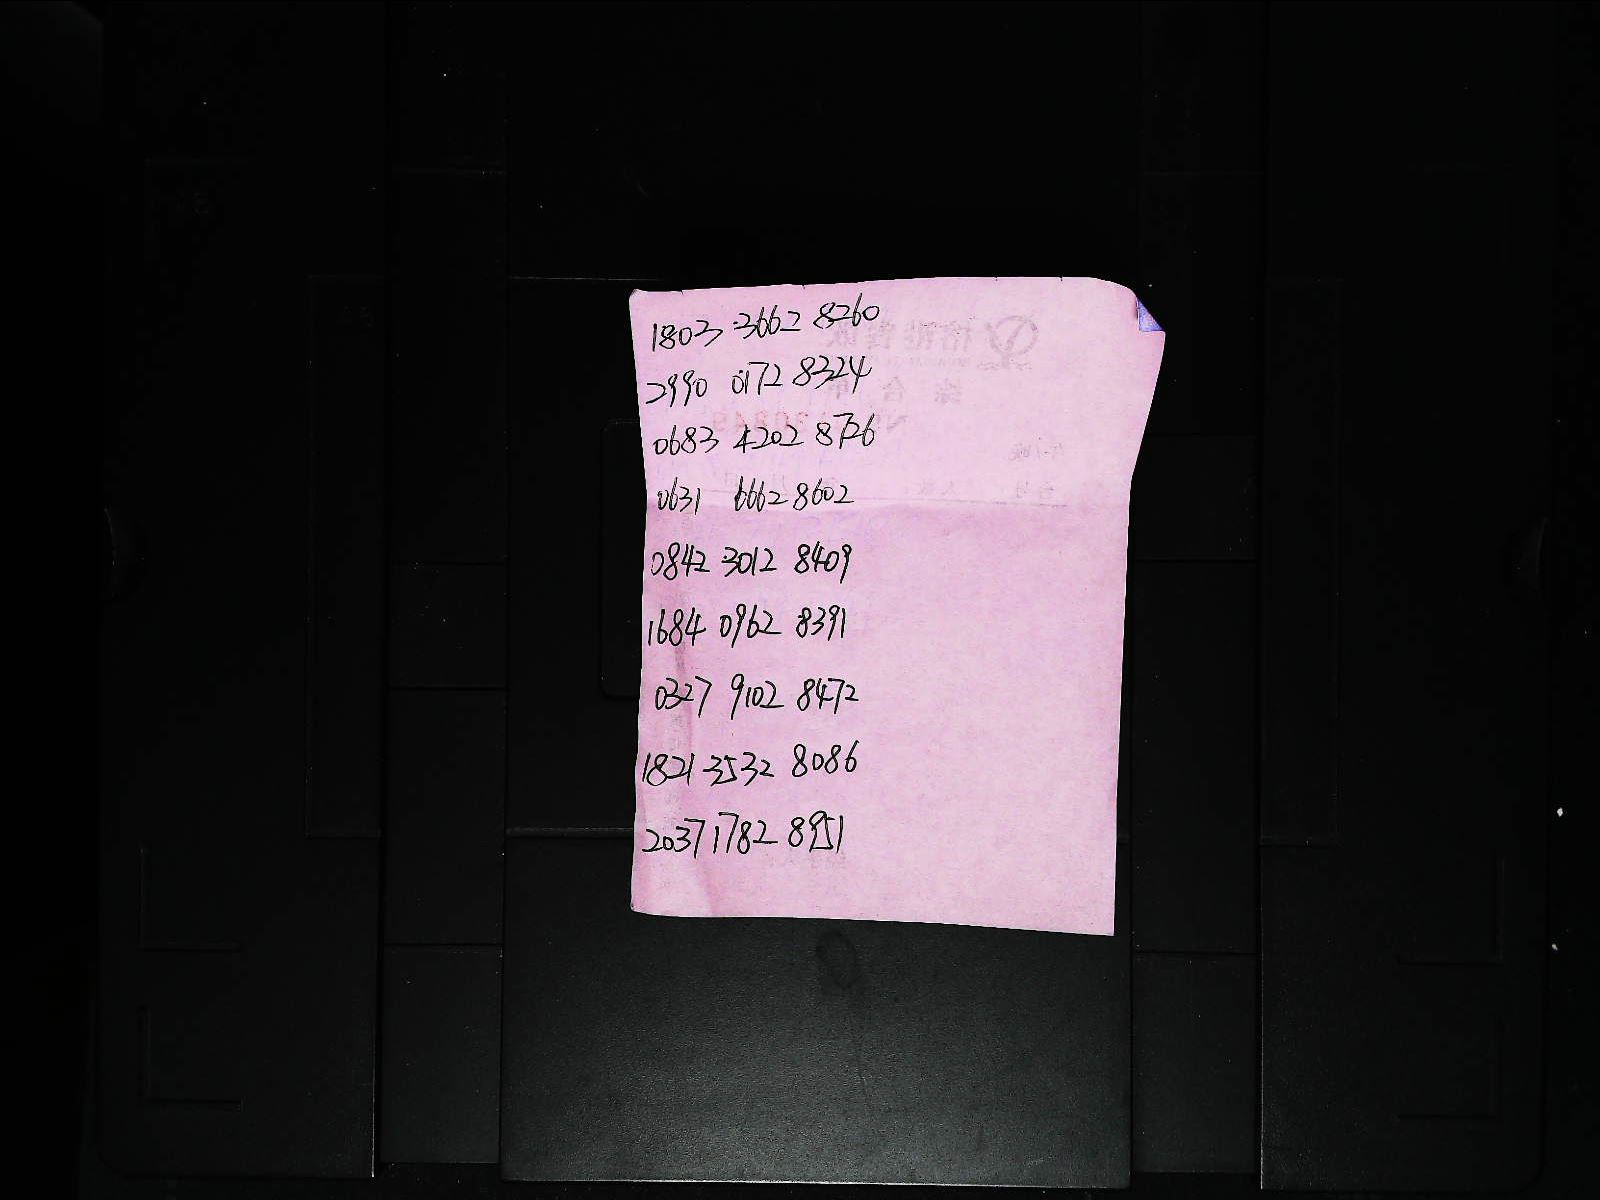 1803 3662 8260
2990 0172 8324
0683 4202 8726
0631 6662 8602
0842 3012 8409
1684 0962 8391
0327 9102 8472
1821 3532 8086
2037 1782 8951